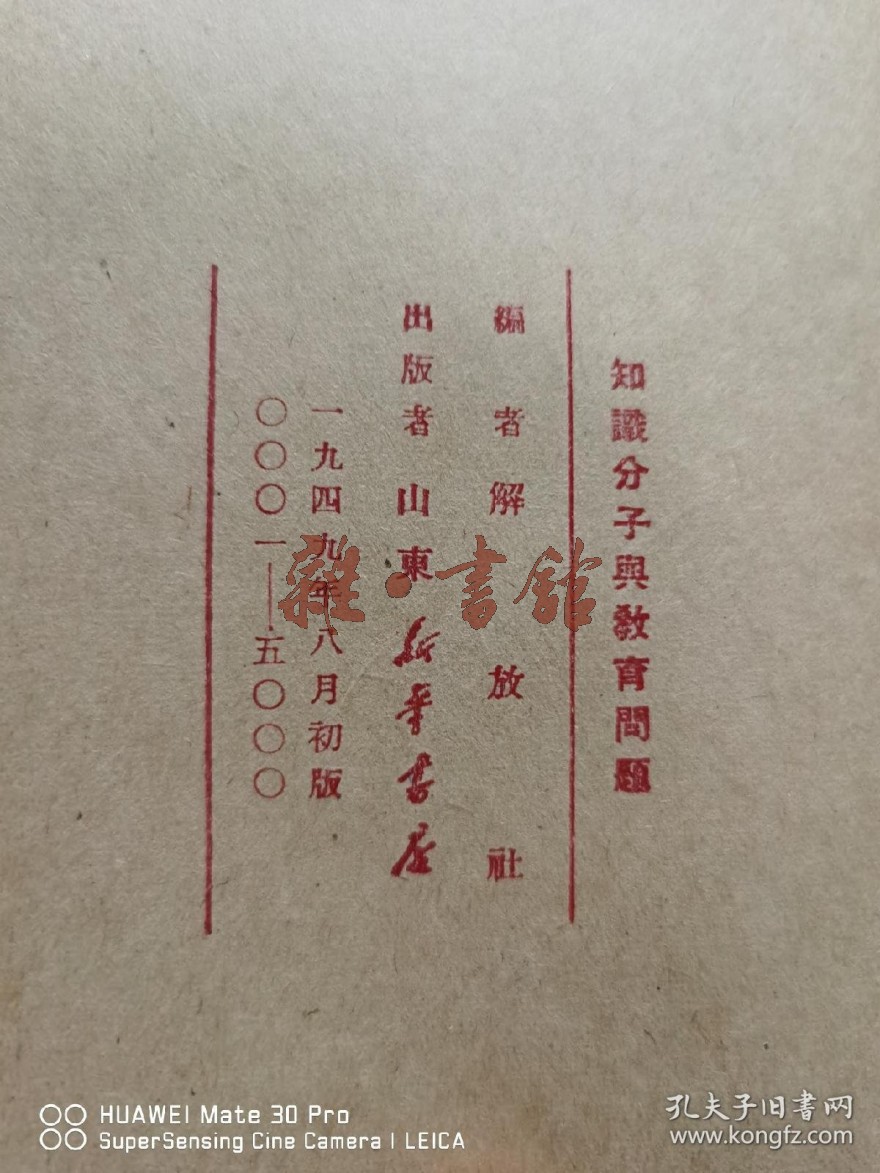 知識分子與教育問題
編者解放社
出版者山東新華書店
一九四九年八月初版
〇〇〇一——五〇〇〇
雜·書館
HUAWEI Mate 30 Pro
SuperSensing Cine Camera | LEICA
孔夫子旧書网
www.kongfz.com